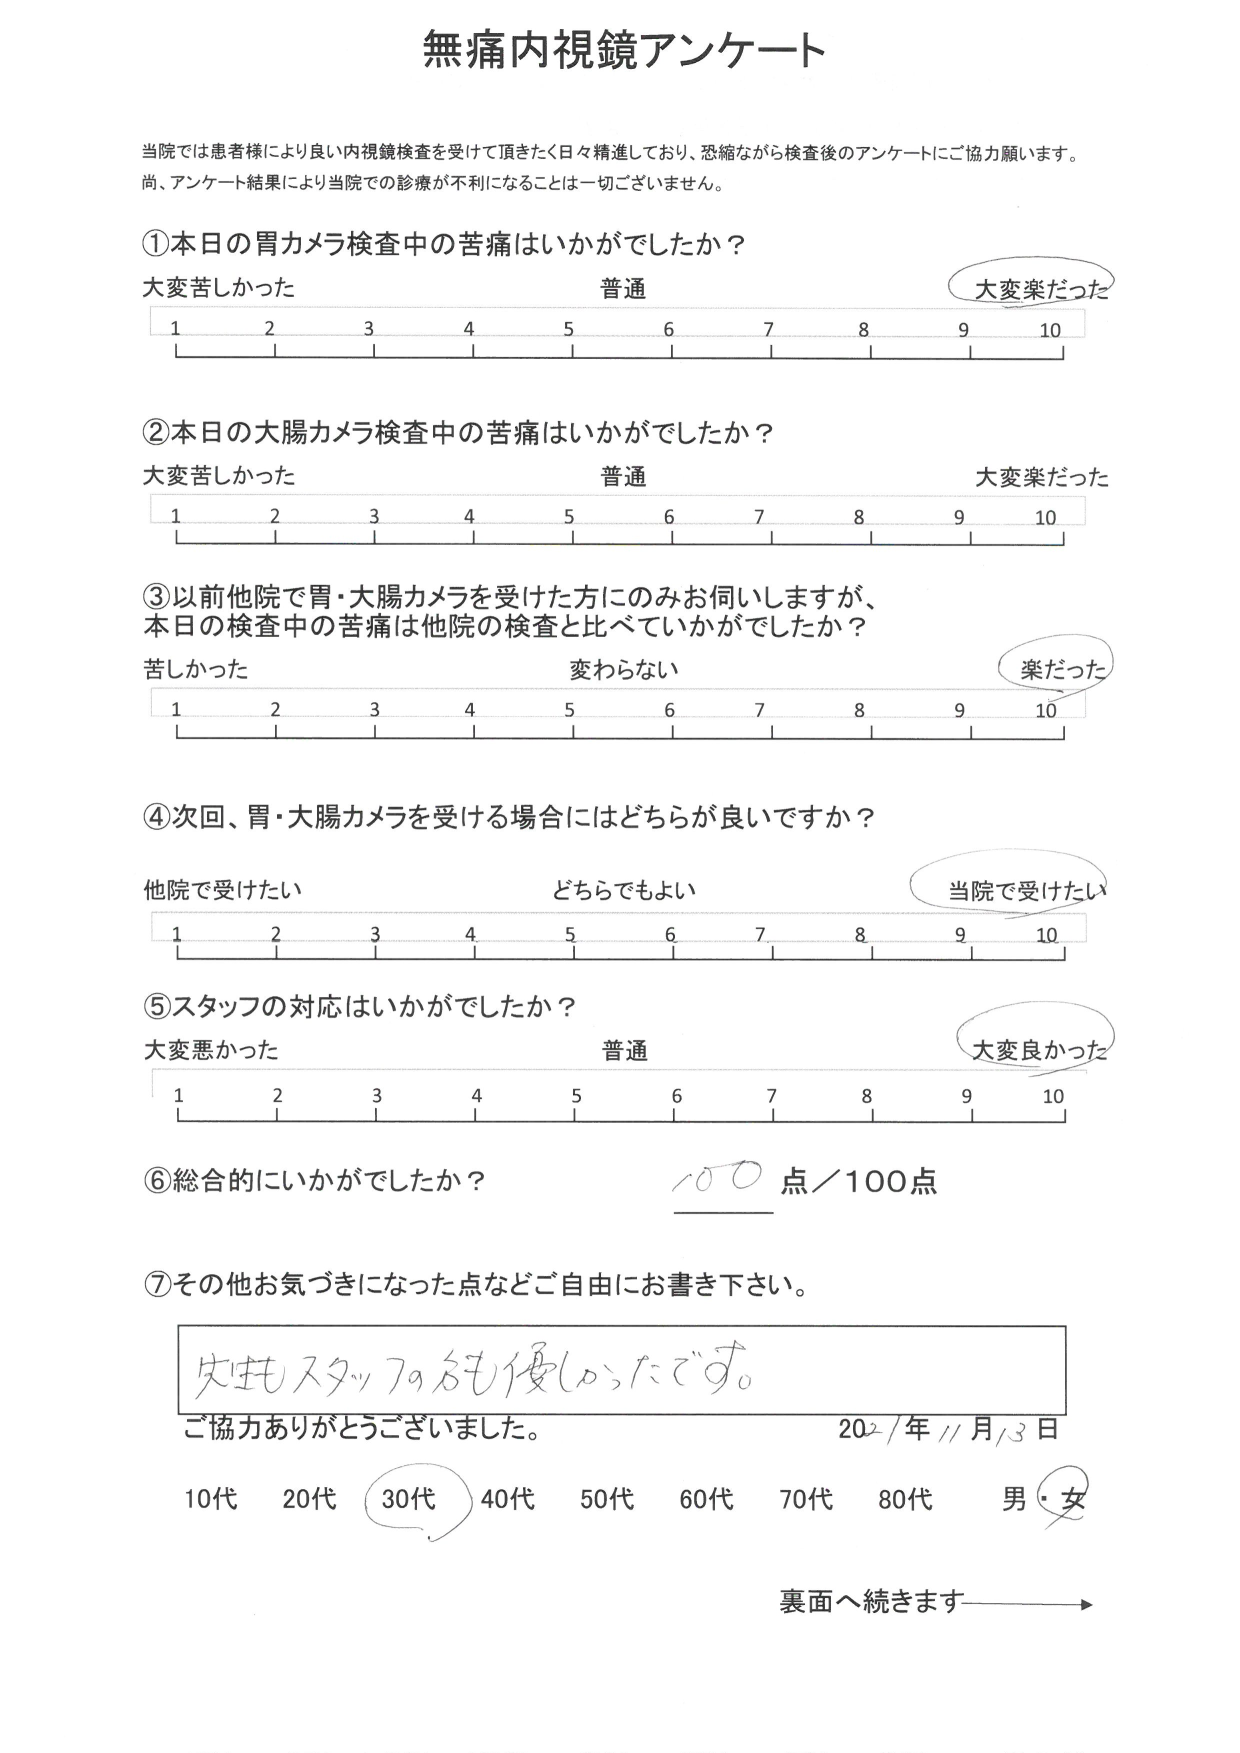 無痛内視鏡アンケート
当院では患者様により良い内視鏡検査を受けて頂きたく日々精進しており、恐縮ながら検査後のアンケートにご協力願います。
尚、アンケート結果により当院での診療が不利になることは一切ございません。
①本日の胃カメラ検査中の苦痛はいかがでしたか？
大変苦しかった 普通 大変楽だった
1 2 3 4 5 6 7 8 9 10
②本日の大腸カメラ検査中の苦痛はいかがでしたか？
大変苦しかった 普通 大変楽だった
1 2 3 4 5 6 7 8 9 10
③以前他院で胃・大腸カメラを受けた方にのみお伺いしますが、
本日の検査中の苦痛は他院の検査と比べていかがでしたか？
苦しかった 変わらない 楽だった
1 2 3 4 5 6 7 8 9 10
④次回、胃・大腸カメラを受ける場合にはどちらが良いですか？
他院で受けたい どちらでもよい 当院で受けたい
1 2 3 4 5 6 7 8 9 10
⑤スタッフの対応はいかがでしたか？
大変悪かった 普通 大変良かった
1 2 3 4 5 6 7 8 9 10
⑥総合的にいかがでしたか？ 100 点／100点
⑦その他お気づきになった点などご自由にお書き下さい。
先生もスタッフの方も優しかったです。
ご協力ありがとうございました。 2021年11月13日
10代 20代 30代 40代 50代 60代 70代 80代 男・女
裏面へ続きます